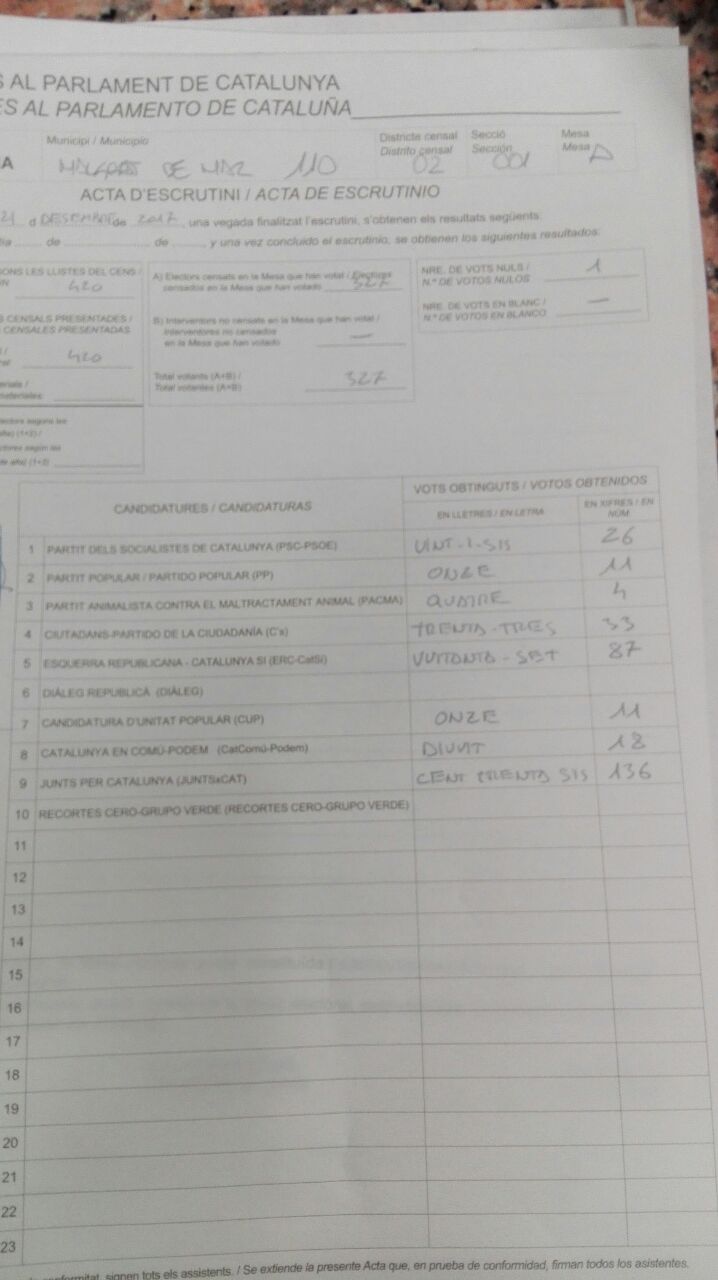 S AL PARLAMENT DE CATALUNYA
ES AL PARLAMENTO DE CATALUÑA
Municipi / Municipio
Districte censal
Distrito censal
Secció
Sección
Mesa
Mesa
A
DE MAR 110
02
001
A
ACTA D'ESCRUTINI / ACTA DE ESCRUTINIO
21 d DESEMBRE de 2017, una vegada finalitzat l'escrutini, s'obtenen els resultats següents:
día ...... de ...... de ......, y una vez concluido el escrutinio, se obtienen los siguientes resultados:
ONS LES LLISTES DEL CENS /
420
S CENSALS PRESENTADES /
CENSALES PRESENTADAS
420
materiales:
A) Electors censats en la Mesa que han votat / Electores
censados en la Mesa que han votado 327
B) Interventors no censats en la Mesa que han votat /
Interventores no censados
en la Mesa que han votado —
Total votants (A+B) /
Total votantes (A+B) 327
NRE. DE VOTS NULS /
N.º DE VOTOS NULOS 1
NRE. DE VOTS EN BLANC /
N.º DE VOTOS EN BLANCO —
CANDIDATURES / CANDIDATURAS
VOTS OBTINGUTS / VOTOS OBTENIDOS
EN LLETRES / EN LETRA
EN XIFRES / EN
NÚM.
1 PARTIT DELS SOCIALISTES DE CATALUNYA (PSC-PSOE) VINT-I-SIS 26
2 PARTIT POPULAR / PARTIDO POPULAR (PP) ONZE 11
3 PARTIT ANIMALISTA CONTRA EL MALTRACTAMENT ANIMAL (PACMA) QUATRE 4
4 CIUTADANS-PARTIDO DE LA CIUDADANÍA (C's) TRENTA-TRES 33
5 ESQUERRA REPUBLICANA - CATALUNYA SI (ERC-CatSí) VUITANTA-SET 87
6 DIÀLEG REPUBLICÀ (DIÀLEG)
7 CANDIDATURA D'UNITAT POPULAR (CUP) ONZE 11
8 CATALUNYA EN COMÚ-PODEM (CatComú-Podem) DIVUIT 18
9 JUNTS PER CATALUNYA (JUNTSxCAT) CENT TRENTA SIS 136
10 RECORTES CERO-GRUPO VERDE (RECORTES CERO-GRUPO VERDE)
11
12
13
14
15
16
17
18
19
20
21
22
23
conformitat, signen tots els assistents. / Se extiende la presente Acta que, en prueba de conformidad, firman todos los asistentes.